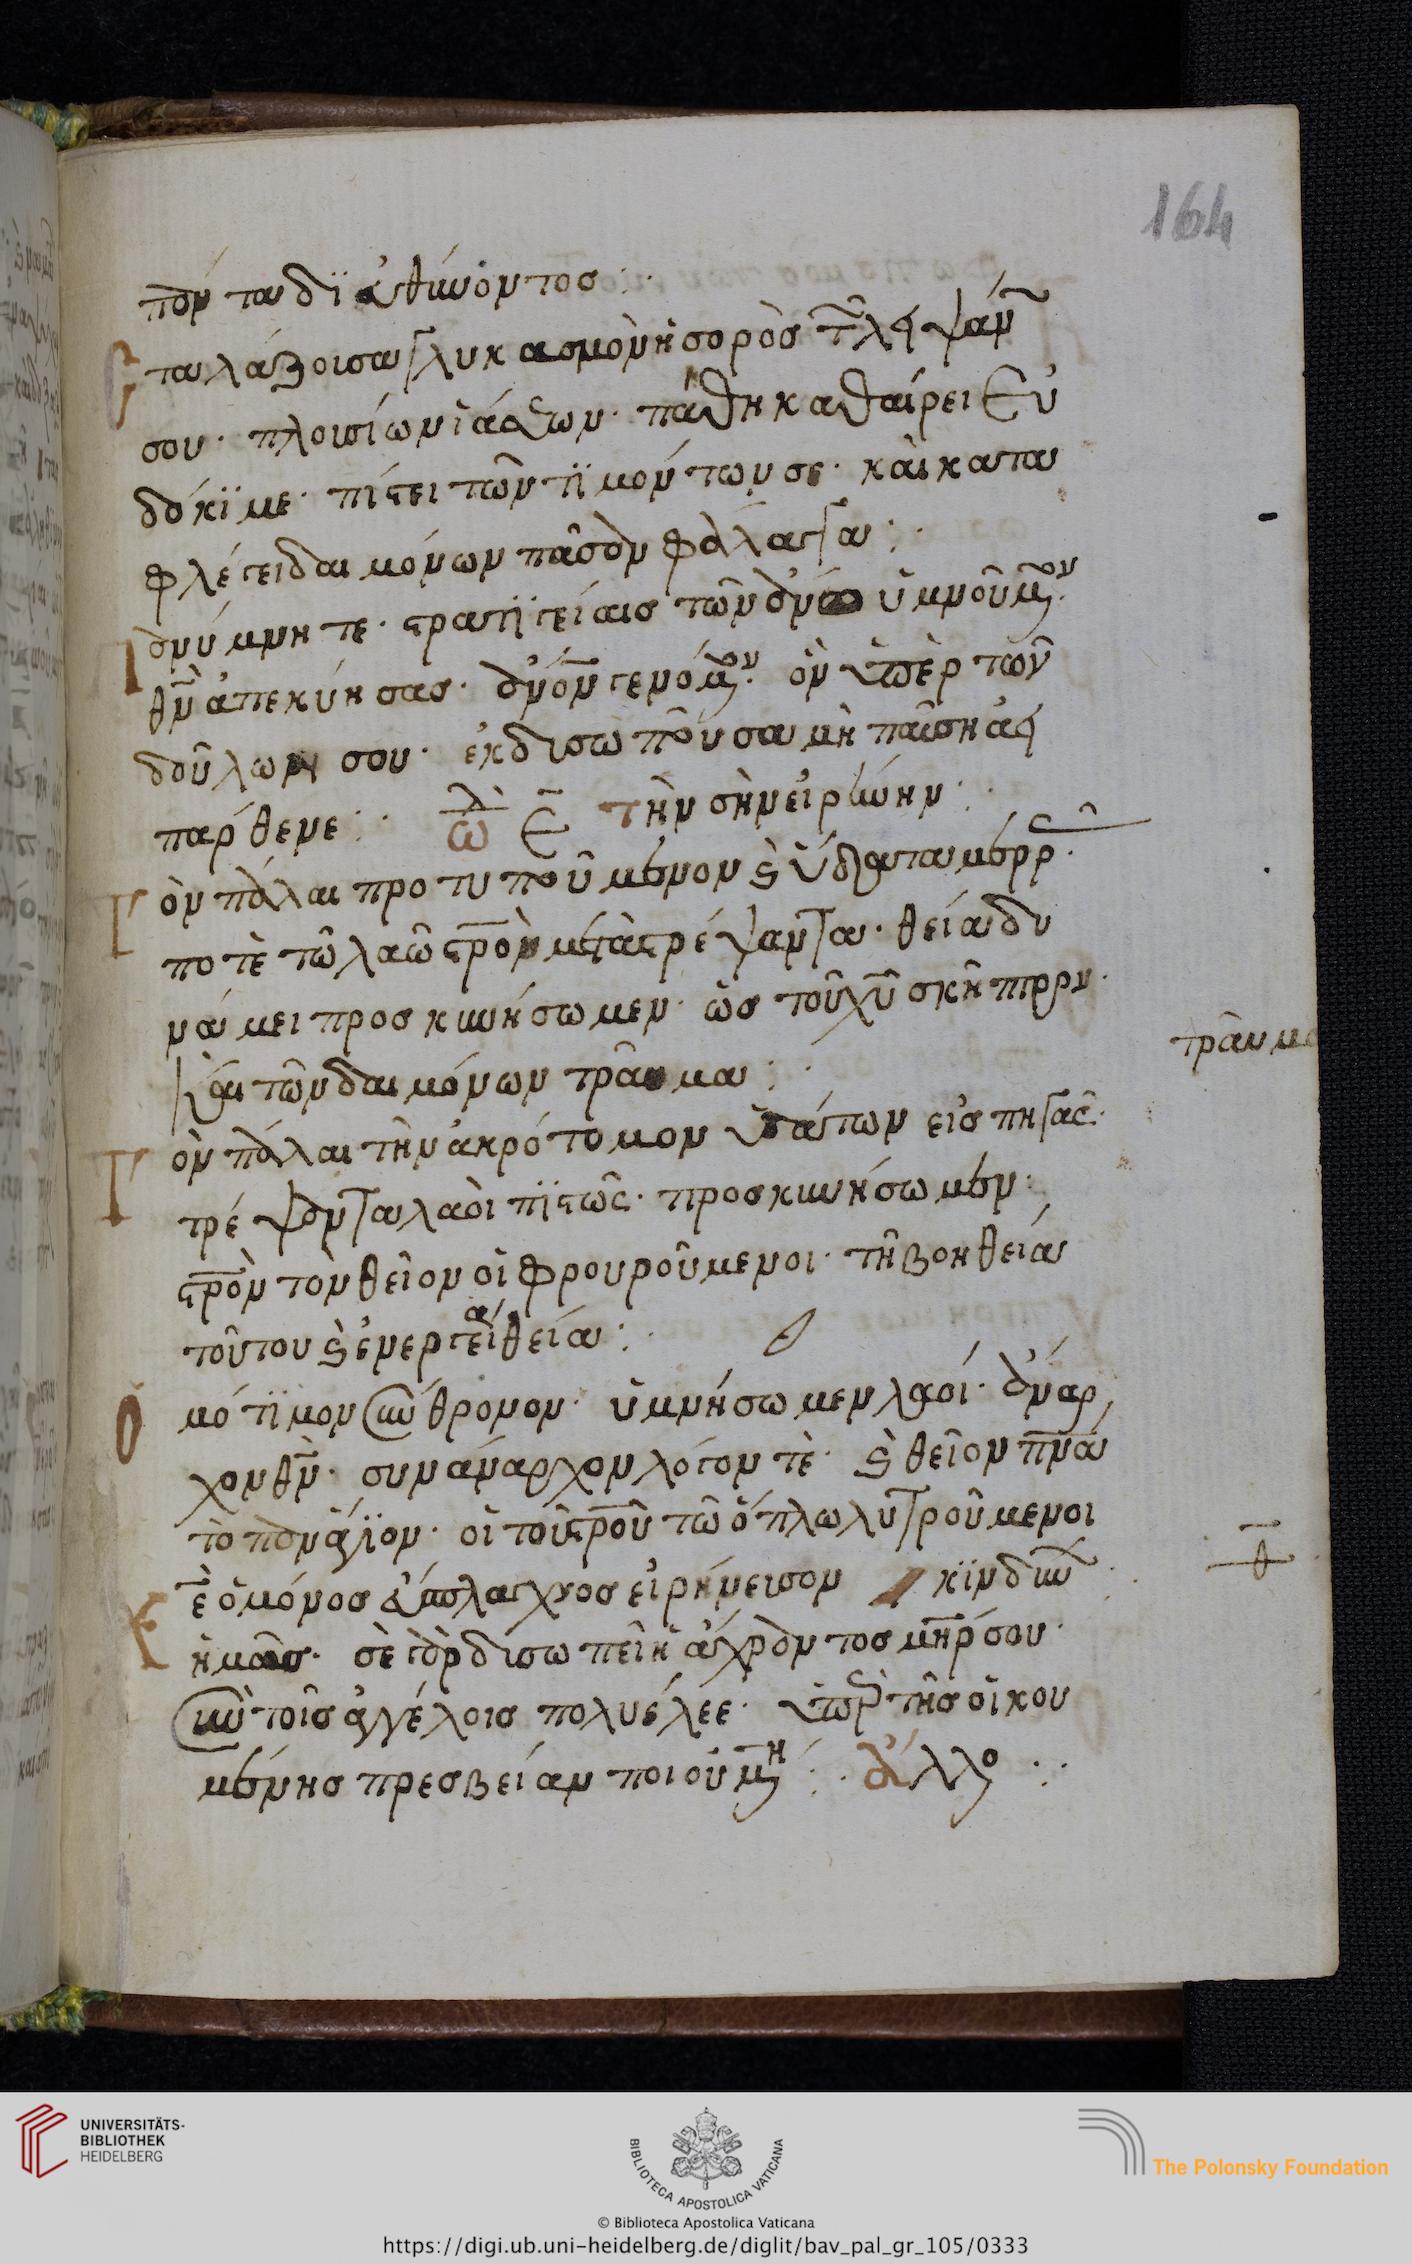 164
πὸν τα δϊ ἀυθύνον τοσ :·
Σ ταλάζοισα γλυκασμὸν ἡ σορὸσ τῆ λειψάν
σου· πλουσίων ἰάσεων· πάθη καθαίρει Εὐ
δόκϊμε· πίστει τῶν τϊμόντων σε· καὶ κατα
φλέγει δαιμόνων πᾶσαν φάλαγγα :·
Τ ανύμνητε· στρατϊγείαισ τῶν ἄνω ὑμνοῦμον·
θν ἀπεκύησας· ἀνον γενόμον· ὃν ὑπὲρ τῶν
δούλων σου· ἐκδισώπουσα μὴ παύσῃ ἀεὶ
παρθένε :· ὠδὴ ε τὴν σὴν εἰρήνην :·
Τ ὸν πάλαι προτυπούμενον καὶ ὕδατα μερρ·
ποτὲ τῶ λαῶ στρὸν μεταστρέψαντα· θεία δυ
νάμει προσκυνήσωμεν· ὡσ τοῦ χῦ σκῆπτρον·
καὶ τῶν δαιμόνων τραῦμα :·
τραῦμα
Τ ὸν πάλαι τὴν ἀκρότομον ὑδάτων εἰσ πηγὰς·
τρέψαντα λαοὶ πϊστῶς· προσκυνήσωμεν·
στρὸν τὸν θεῖον οἱ φρουρούμενοι· τῆ βοηθεία
τούτου καὶ ἐνεργεία θεία :·
Ὁ μότϊμον σύνθρονον· ὑμνήσωμεν λαοί· ἄναρ
χον θν· συνάναρχον λόγον τὲ· καὶ θεῖον πνα
τὸ πανάγϊον· οἱ τοῦ στροῦ τῶ ὅπλω λυτρούμενοι
θ
Ἐ ὁ μόνοσ εὔσπλαγχνοσ εἰρήνευσον κϊνδύν
ἡμᾶσ· σὲ γὰρ δισωπεῖ ἡ ἄχραντοσ μηρ σου·
σὺν τοῖσ ἀγγέλοισ πολυέλεε· ὑπὲρ τῆσ οἰκου
μένησ πρεσβείαν ποιουμη :· ἄλλο :·
UNIVERSITÄTS-
BIBLIOTHEK
HEIDELBERG
BIBLIOTECA APOSTOLICA VATICANA
The Polonsky Foundation
© Biblioteca Apostolica Vaticana
https://digi.ub.uni-heidelberg.de/diglit/bav_pal_gr_105/0333